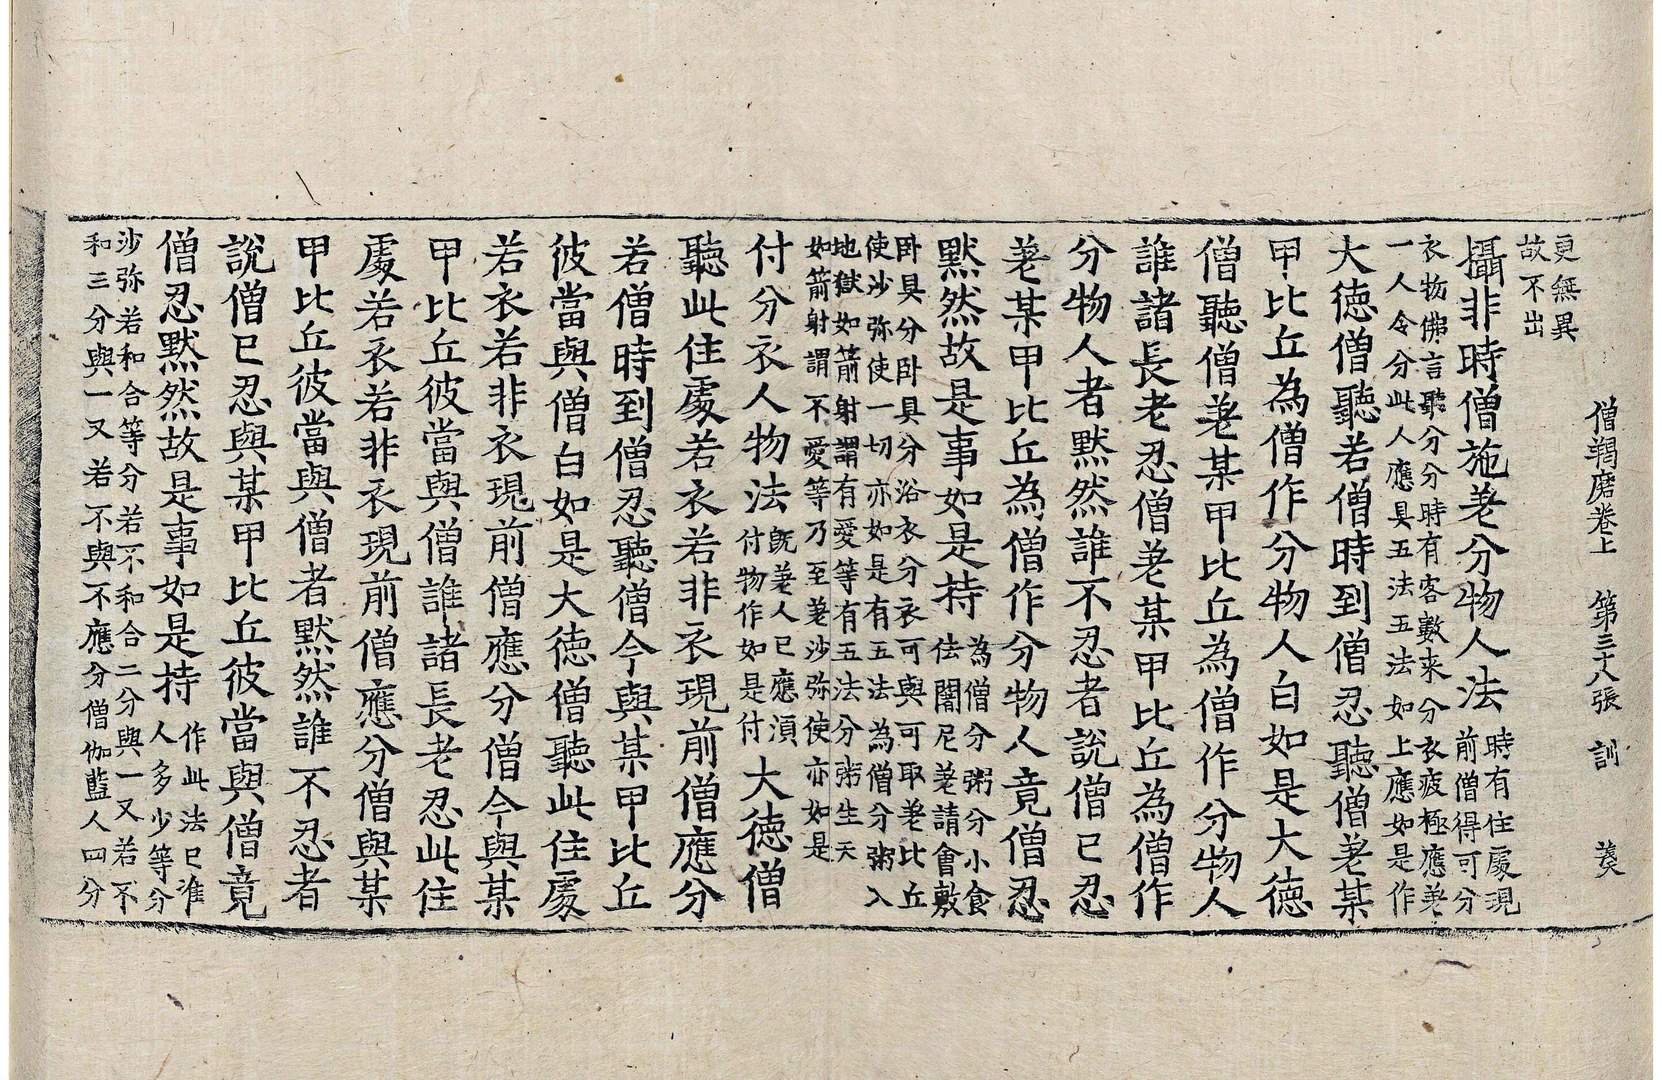 僧羯磨卷上 第三十八張 訓
更無異
故不出
攝非時僧施差分物人法時有住處現
前僧得可分
衣物佛言聽分分時有客數来分衣疲極應差
一人令分此人應具五法五法如上應如是作
大德僧聽若僧時到僧忍聽僧差某
甲比丘為僧作分物人白如是大德
僧聽僧差某甲比丘為僧作分物人
誰諸長老忍僧差某甲比丘為僧作
分物人者默然誰不忍者說僧已忍
差某甲比丘為僧作分物人竟僧忍
默然故是事如是持為僧分粥分小食
佉闍尼差請會敷
卧具分卧具分浴衣分衣可與可取差比丘
使沙弥使一切亦如是有五法為僧分粥入
地獄如箭射謂有愛等有五法分粥生天
如箭射謂不愛等乃至差沙弥使亦如是
付分衣人物法既差人已應湏
付物作如是付大德僧
聽此住處若衣若非衣現前僧應分
若僧時到僧忍聽僧今與某甲比丘
彼當與僧白如是大德僧聽此住處
若衣若非衣現前僧應分僧今與某
甲比丘彼當與僧誰諸長老忍此住
處若衣若非衣現前僧應分僧與某
甲比丘彼當與僧者默然誰不忍者
說僧已忍與某甲比丘彼當與僧竟
僧忍默然故是事如是持作此法已准
人多少等分
沙弥若和合等分若不和合二分與一又若不
和三分與一又若不與不應分僧伽藍人四分